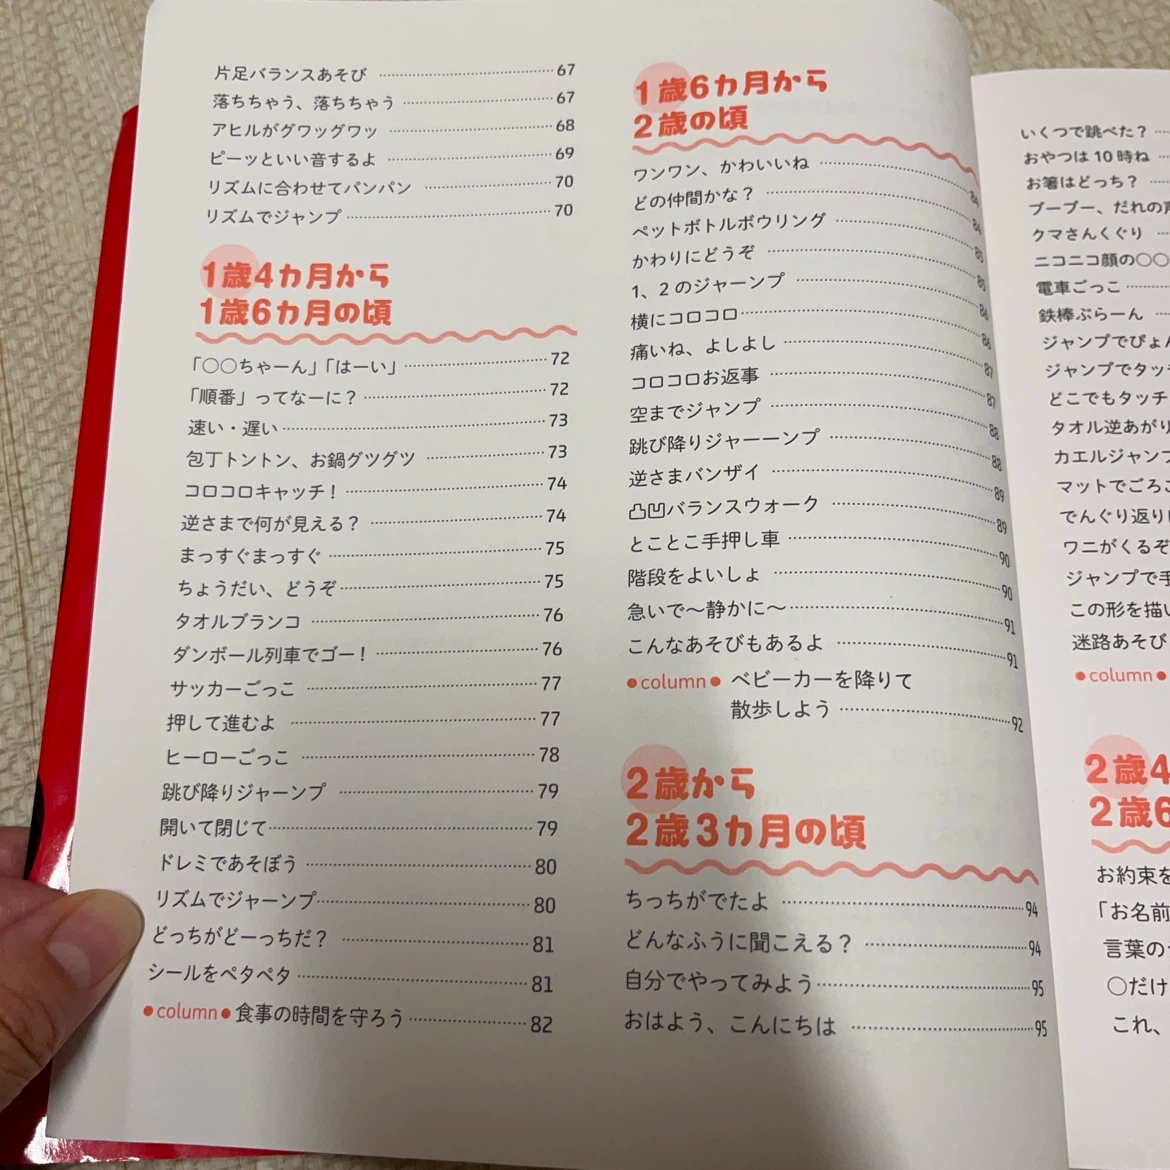 片足バランスあそび 67
落ちちゃう、落ちちゃう 67
アヒルがグワッグワッ 68
ピーッといい音するよ 69
リズムに合わせてパンパン 70
リズムでジャンプ 70
1歳4カ月から
1歳6カ月の頃
「○○ちゃーん」「はーい」 72
「順番」ってなーに？ 72
速い・遅い 73
包丁トントン、お鍋グツグツ 73
コロコロキャッチ！ 74
逆さまで何が見える？ 74
まっすぐまっすぐ 75
ちょうだい、どうぞ 75
タオルブランコ 76
ダンボール列車でゴー！ 76
サッカーごっこ 77
押して進むよ 77
ヒーローごっこ 78
跳び降りジャーンプ 79
開いて閉じて 79
ドレミであそぼう 80
リズムでジャーンプ 80
どっちがどーっちだ？ 81
シールをペタペタ 81
●column●食事の時間を守ろう 82
1歳6カ月から
2歳の頃
ワンワン、かわいいね 84
どの仲間かな？ 84
ペットボトルボウリング 85
かわりにどうぞ 85
1、2のジャーンプ 86
横にコロコロ 86
痛いね、よしよし 87
コロコロお返事 87
空までジャンプ 88
跳び降りジャーーンプ 88
逆さまバンザイ 89
凸凹バランスウォーク 89
とことこ手押し車 90
階段をよいしょ 90
急いで〜静かに〜 91
こんなあそびもあるよ 91
●column● ベビーカーを降りて
散歩しよう 92
2歳から
2歳3カ月の頃
ちっちがでたよ 94
どんなふうに聞こえる？ 94
自分でやってみよう 95
おはよう、こんにちは 95
いくつで跳べた？
おやつは10時ね
お箸はどっち？
ブーブー、だれの
クマさんくぐり
ニコニコ顔の○○
電車ごっこ
鉄棒ぶらーん
ジャンプでぴょん
ジャンプでタッ
どこでもタッチ
タオル逆あがり
カエルジャンプ
マットでごろご
でんぐり返り
ワニがくるぞ
ジャンプで手
この形を描い
迷路あそび
●column●
2歳4
2歳6
お約束を
「お名前
言葉の
○だけ
これ、